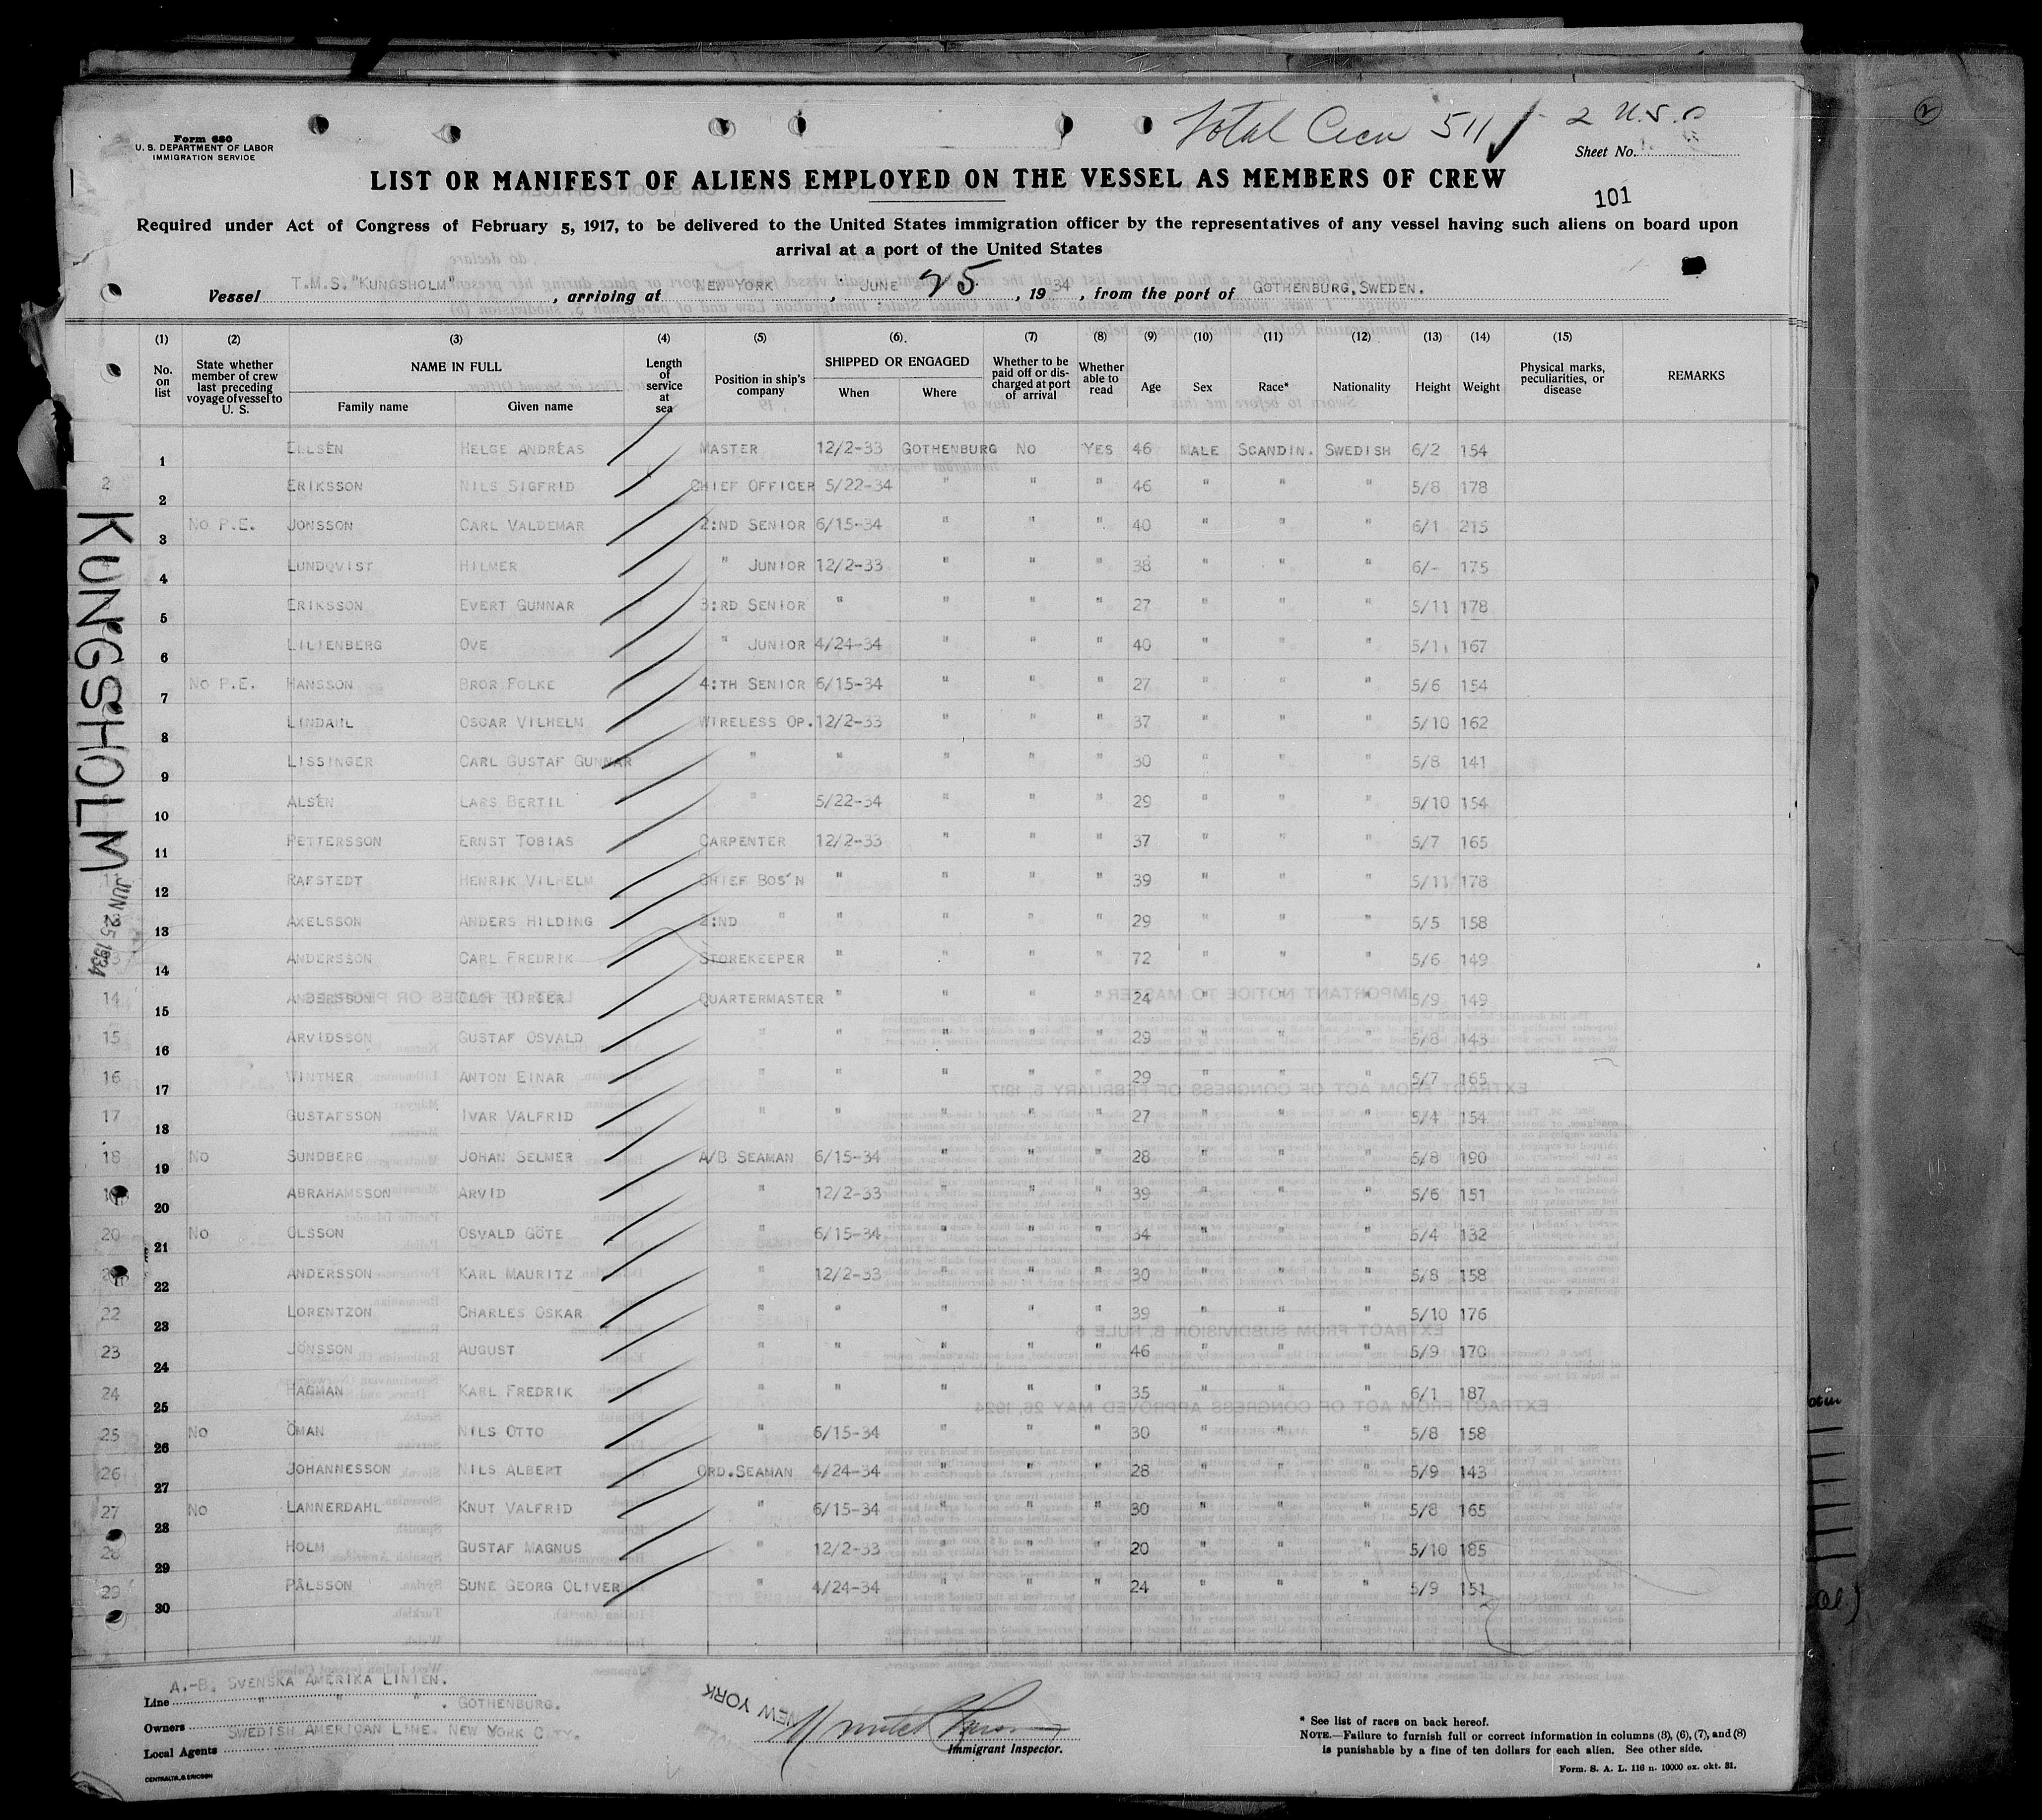 Total Crew 511 - 2 U.S.C
Form 680
U. S. DEPARTMENT OF LABOR
IMMIGRATION SERVICE
Sheet No.
LIST OR MANIFEST OF ALIENS EMPLOYED ON THE VESSEL AS MEMBERS OF CREW
101
Required under Act of Congress of February 5, 1917, to be delivered to the United States immigration officer by the representatives of any vessel having such aliens on board upon
arrival at a port of the United States
Vessel T.M.S. "KUNGSHOLM", arriving at NEW YORK, JUNE 25, 1934, from the port of GOTHENBURG, SWEDEN.
(1) (2) (3) (4) (5) (6) (7) (8) (9) (10) (11) (12) (13) (14) (15)
No. on list State whether member of crew last preceding voyage of vessel to U. S. NAME IN FULL Family name Given name Length of service at sea Position in ship's company SHIPPED OR ENGAGED When Where Whether to be paid off or discharged at port of arrival Whether able to read Age Sex Race* Nationality Height Weight Physical marks, peculiarities, or disease REMARKS
1 ELLSÉN HELGE ANDRÉAS MASTER 12/2-33 GOTHENBURG NO YES 46 MALE SCANDIN. SWEDISH 6/2 154
2 2 ERIKSSON NILS SIGFRID CHIEF OFFICER 5/22-34 " " " 46 " " " 5/8 178
3 NO P.E. JONSSON CARL VALDEMAR 2:ND SENIOR 6/15-34 " " " 40 " " " 6/1 215
4 LUNDQVIST HILMER " JUNIOR 12/2-33 " " " 38 " " " 6/- 175
5 ERIKSSON EVERT GUNNAR 3:RD SENIOR " " " " 27 " " " 5/11 178
6 LILIENBERG OVE " JUNIOR 4/24-34 " " " 40 " " " 5/11 167
7 NO P.E. HANSSON BROR FOLKE 4:TH SENIOR 6/15-34 " " " 27 " " " 5/6 154
8 LINDAHL OSCAR VILHELM WIRELESS OP. 12/2-33 " " " 37 " " " 5/10 162
9 LISSINGER CARL GUSTAF GUNNAR " " " " " 30 " " " 5/8 141
10 ALSÉN LARS BERTIL " 5/22-34 " " " 29 " " " 5/10 154
11 PETTERSSON ERNST TOBIAS CARPENTER 12/2-33 " " " 37 " " " 5/7 165
12 RAFSTEDT HENRIK VILHELM CHIEF BOS'N " " " " 39 " " " 5/11 178
13 AXELSSON ANDERS HILDING 2:ND " " " " " 29 " " " 5/5 158
14 ANDERSSON CARL FREDRIK STOREKEEPER " " " " 72 " " " 5/6 149
14 15 ANDERSSON OLOF BIRGER QUARTERMASTER " " " " 24 " " " 5/9 149
15 16 ARVIDSSON GUSTAF OSVALD " " " " " 29 " " " 5/8 143
16 17 WINTHER ANTON EINAR " " " " " 29 " " " 5/7 165
17 18 GUSTAFSSON IVAR VALFRID " " " " " 27 " " " 5/4 154
18 19 NO SUNDBERG JOHAN SELMER A/B SEAMAN 6/15-34 " " " 28 " " " 5/8 190
20 ABRAHAMSSON ARVID " 12/2-33 " " " 39 " " " 5/6 151
20 21 NO OLSSON OSVALD GÖTE " 6/15-34 " " " 34 " " " 5/4 132
22 ANDERSSON KARL MAURITZ " 12/2-33 " " " 30 " " " 5/8 158
22 23 LORENTZON CHARLES OSKAR " " " " " 39 " " " 5/10 176
23 24 JÖNSSON AUGUST " " " " " 46 " " " 5/9 170
24 25 HAGMAN KARL FREDRIK " " " " " 35 " " " 6/1 187
25 26 NO ÖMAN NILS OTTO " 6/15-34 " " " 30 " " " 5/8 158
26 27 JOHANNESSON NILS ALBERT ORD.SEAMAN 4/24-34 " " " 28 " " " 5/9 143
27 28 NO LANNERDAHL KNUT VALFRID " 6/15-34 " " " 30 " " " 5/8 165
28 29 HOLM GUSTAF MAGNUS " 12/2-33 " " " 20 " " " 5/10 185
29 30 PÅLSSON SUNE GEORG OLIVER " 4/24-34 " " " 24 " " " 5/9 151
KUNGSHOLM
JUN 25 1934
Line A.-B. SVENSKA AMERIKA LINIEN.
Owners " " " . GOTHENBURG.
Local Agents SWEDISH AMERICAN LINE. NEW YORK CITY.
NEW YORK
Immigrant Inspector.
* See list of races on back hereof.
NOTE.—Failure to furnish full or correct information in columns (3), (6), (7), and (8)
is punishable by a fine of ten dollars for each alien. See other side.
Form. S. A. L. 116 n. 10000 ex. okt. 31.
CENTRALTR., G. ERICSON
2